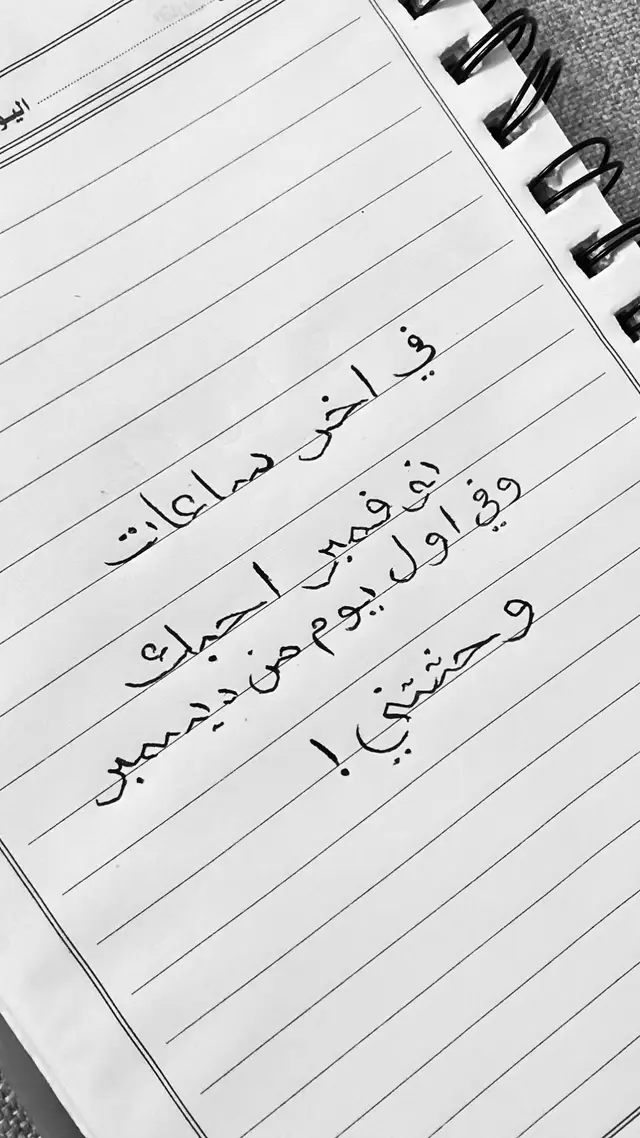 اليو
في اخر ساعات
نوفمبر احبك
وفي اول يوم من ديسمبر
وحشتني !